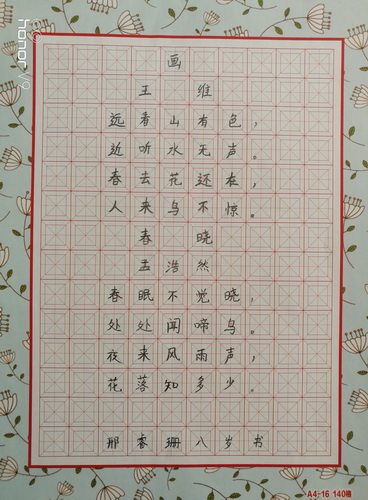 画
王 维
远看山有色，
近听水无声。
春去花还在，
人来鸟不惊。
春 晓
孟浩然
春眠不觉晓，
处处闻啼鸟。
夜来风雨声，
花落知多少。
邢睿珊八岁书
A4-16 140格
honor V9